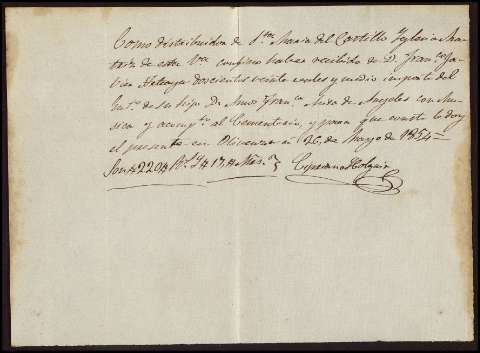 Como distribuidor de S.ta Maria del Castillo Yglesia Ma
triz de esta V.a confieso haber recibido de D. Fran.co Ja
vier doscientos veinte reales y medio importe del
de su hijo D. Fran.co de Angeles con Mu
sica y acomp.to al Cementerio, y para que conste le doy
el presente en Olivenza a 26, de Mayo de 1854=
Son #220# R.s y #17# Mrs. Cipriano Holgain